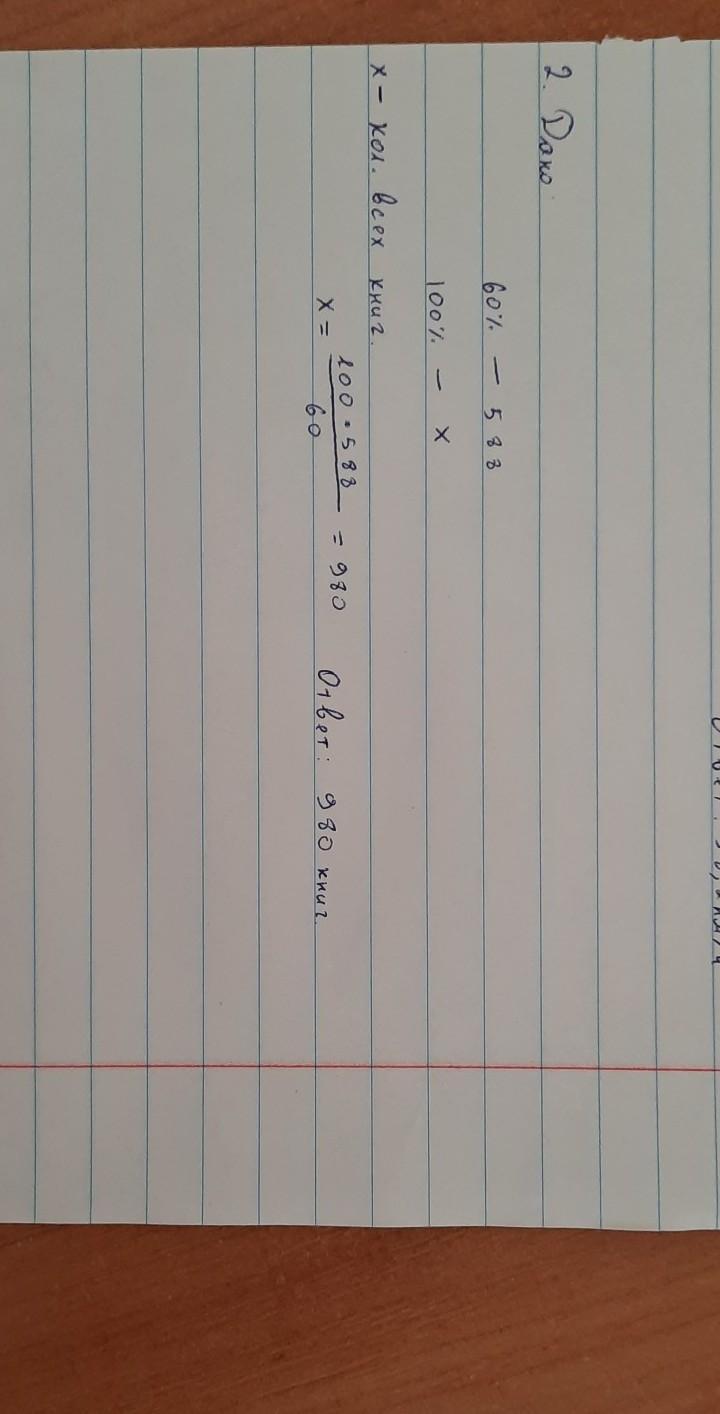 2. Дано:
60% – 588
100% – x
x – кол. всех книг.
x = 100 · 588 / 60 = 980 Ответ: 980 книг.